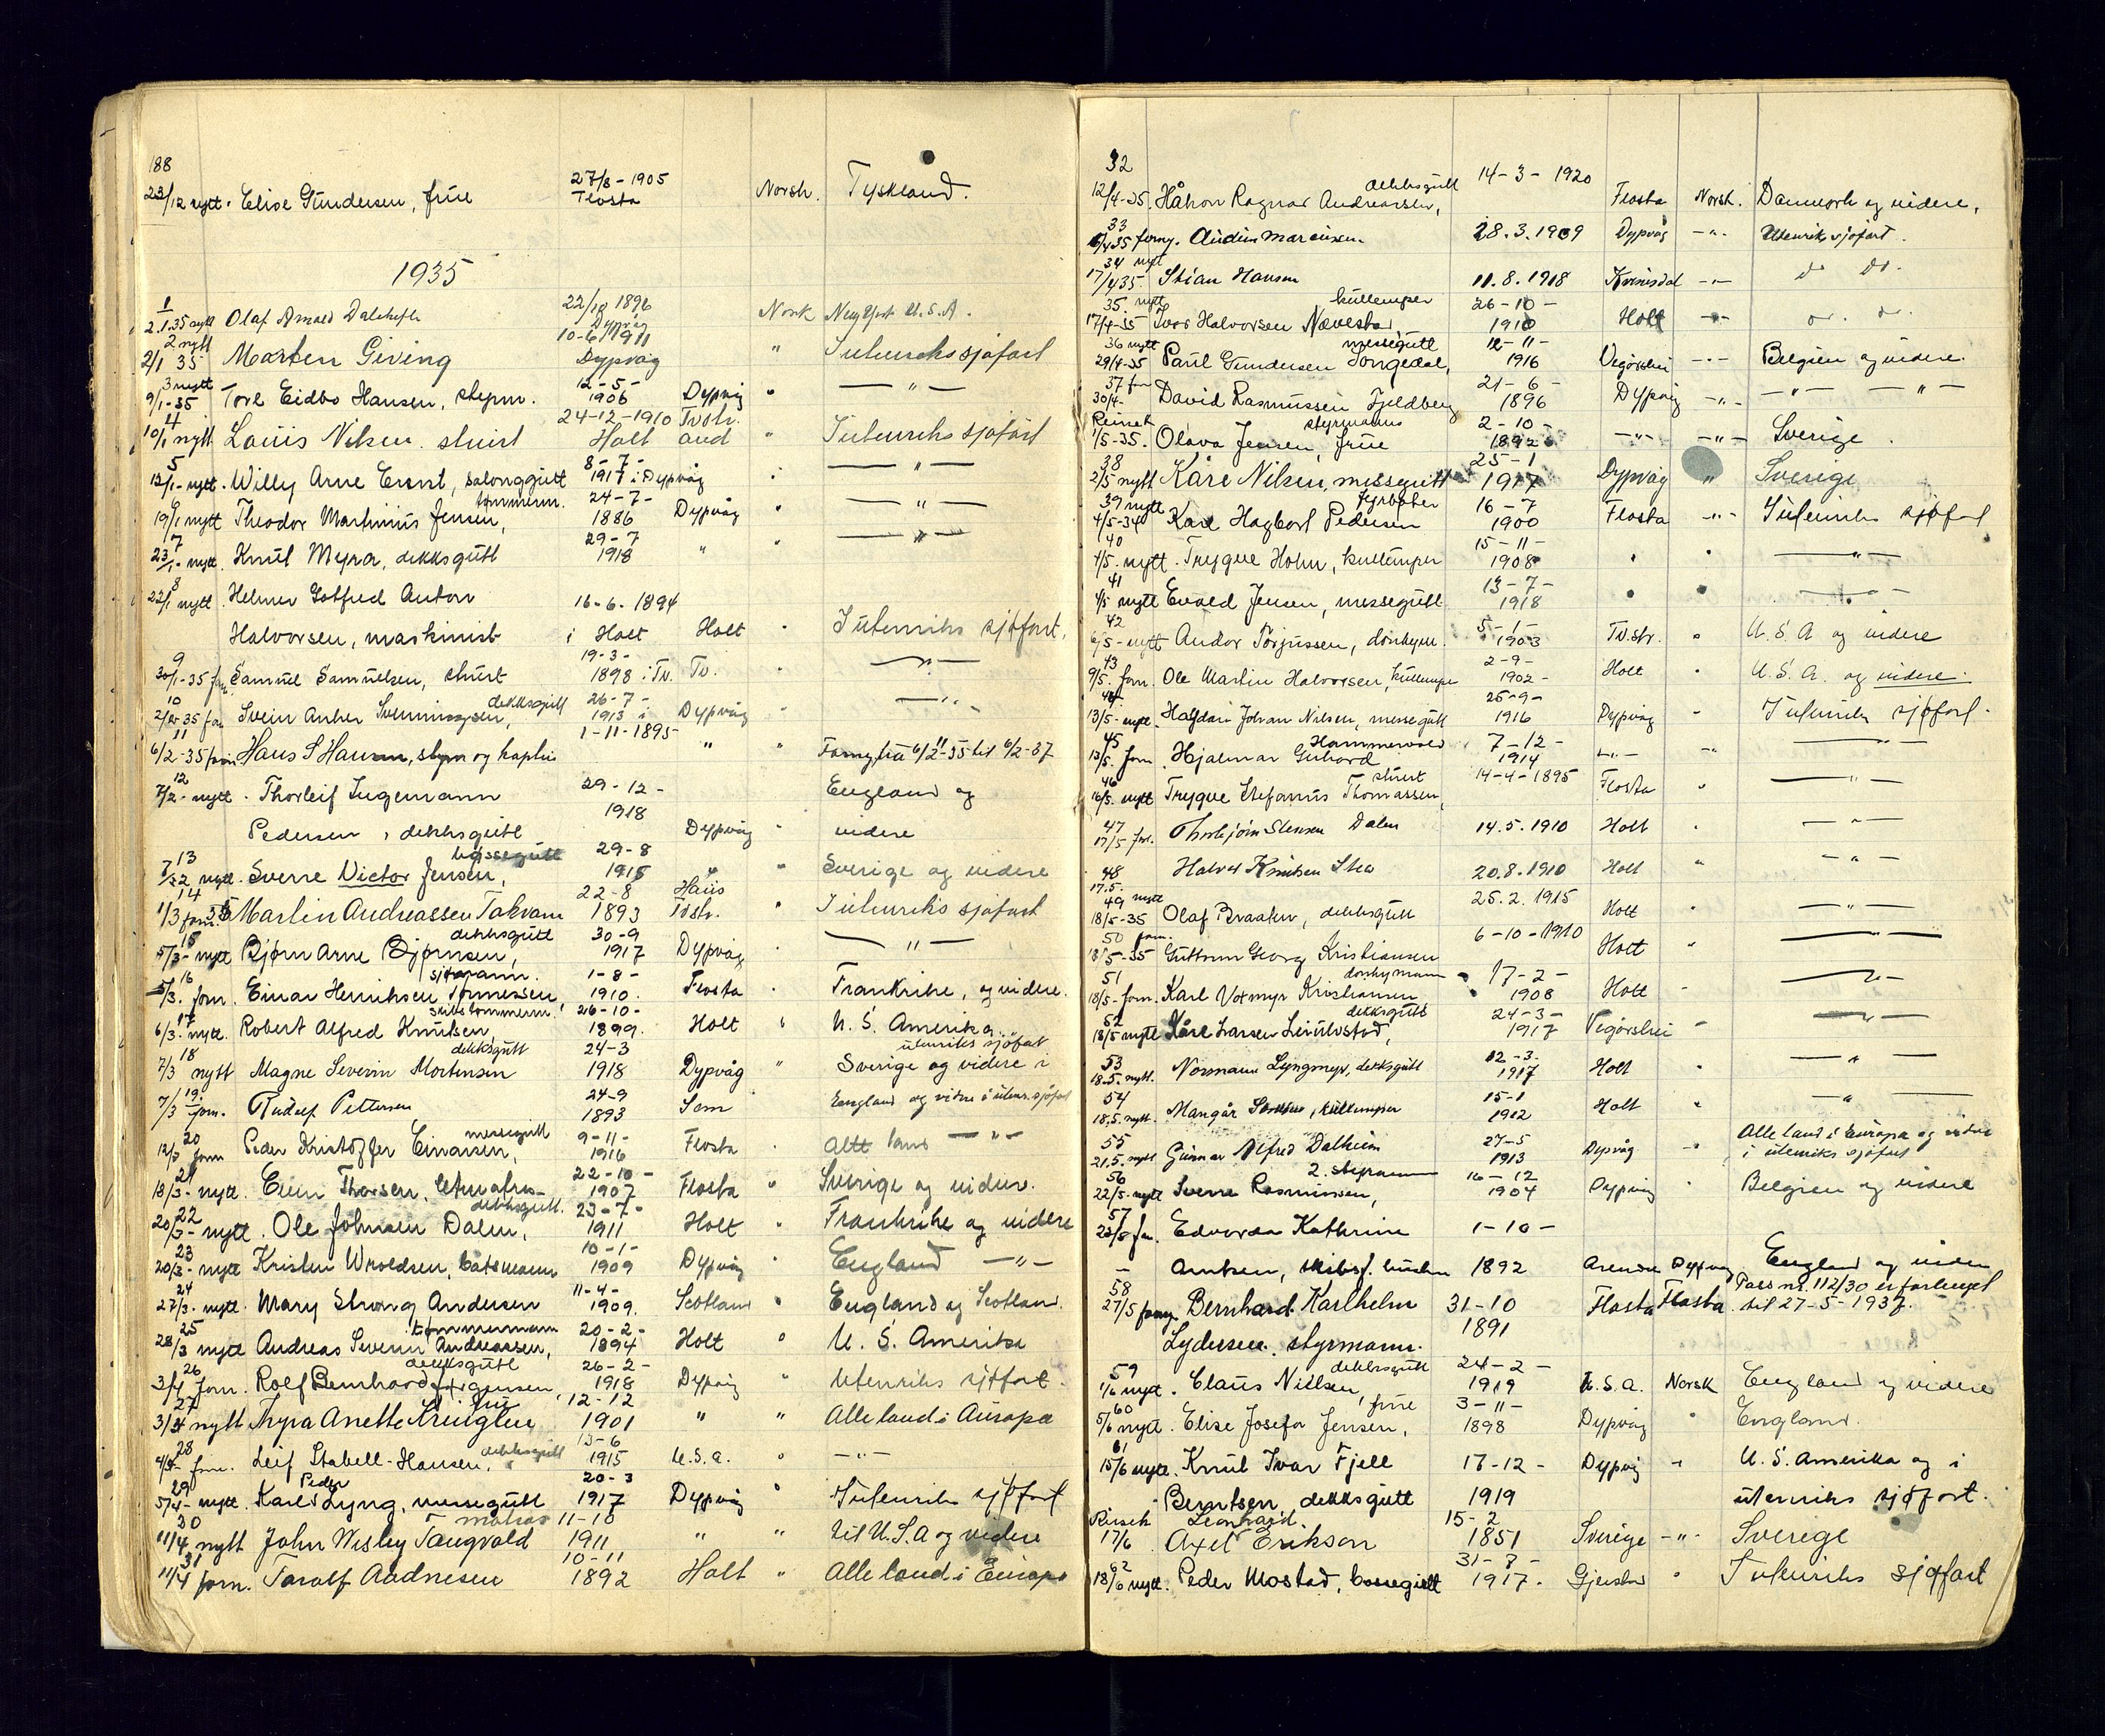 188
23/12 nytt. Elise Gundersen, frue 27/8-1905 Flosta Norsk. Tyskland.
1935
1 2.1.35 nytt Olaf Arnold 22/10 1896 Dypvåg Norsk New York U.S.A.
2 nytt 2/1 35 Marten Giving 10-6/1911 Dypvåg " Iutenriks sjøfart
3 nytt 9/1-35 Tore Eidbo Hansen, styrm. 12-5-1906 Dypvåg " — " —
4 10/1 nytt Louis Nilsen. stuert 24-12-1910 Holt Tvstr. " Iutenriks sjøfart
5 12/1-nytt. Willy Arne Ernst, salonggutt 8-7-1917 i Dypvåg — " —
6 19/1 nytt Theodor Martinius Jensen, tømmerm. 24-7-1886 Dypvåg " — " —
7 23/1-nytt. Knut Myra, dekksgutt 29-7 1918 " " — " —
8 22/1 nytt. Helmer Gotfred Anton
Halvorsen, maskinist 16-6-1894 i Holt Holt " Iutenriks sjøfart.
9 30/1-35 forn. Samuel Samuelsen, stuert 19-3-1898 i Tv. Tv. " — " —
10 2/2 35 forn Svein Anker dekksgutt 26-7-1913 i Dypvåg " — " —
11 6/2-35 forn Hans S Hansen, styrm og kaptein 1-11-1895 " " Forny. fra 6/2-35 til 6/2-37
12 7/2-nytt. Thorleif Ingemann 29-12-1918 England og
Pedersen, dekksgutt Dypvåg " videre
13 7/2 nytt. Sverre Victor Jensen, byssegutt 29-8 1915 " " Sverige og videre
14 1/3 forn. 35 Martin Andreassen Takvam 22-8 1893 Haus Tvstr. " Iutenriks sjøfart
15 5/3-nytt Bjørn Arne Bjørnsen, dekksgutt 30-9 1917 Dypvåg — " —
16 5/3. forn. Einar Henriksen Tønnessen, sjømann. 1-8-1910. Flosta " Frankrike, og videre.
17 6/3. nytt. Robert Alfred Knutsen, skibstømmerm. 26-10-1899. Holt " U. S. Amerika
18 7/3 nytt Magne Severin Mortensen dekksgutt 24-3 1918 Dypvåg " Sverige og videre i utenriks sjøfart
19. 7/3 forn. Rudolf Pettersen 24-9 1893 Sem England og videre i utenr. sjøfart
20 12/3 forn Peder Kristoffer Einarsen, messegutt 9-11-1916 Flosta " Alle land — " —
21 18/3-nytt. Even Thorsen, 22-10-1907 Flosta " Sverige og videre.
22 20/3-nytt. Ole Johnsen Dalen, dekksgutt. 23-7-1911 Holt " Frankrike og videre
23 20/3-nytt Kristen Wroldsen, båtsmann 10-1-1909 Dypvåg " England — " —
24 27/3-nytt. Mary Strong Andersen 11-4-1909. Scotland " England og Scotland.
25 28/3 nytt Andreas Severin Andreassen, tømmermann 20-2-1894 Holt " U. S. Amerika
26 3/4 forn. Rolf Bernhard Jørgensen, dekksgutt 26-2-1918 Dypvåg " Utenriks sjøfart.
27 3/4 nytt Thyra Anette Kringlen fru 12-12 1901 " " Alle land i Auropa
28 4/4- forn. Leif Stabell-Hansen, dekksgutt 13-6 1915 U.S.A. " — " —
29 5/4-nytt. Karl Peder Lyng, messegutt 20-3 1917 Dypvåg " Iutenriks sjøfart
30 11/4 nytt John Wesley Taugvald matros 11-10 1911 " " til U.S.A og videre
31 11/4 forn. Taralf Aadnesen 10-11 1892 Holt " Alle land i Europa
32 12/4-35. Håkon Ragnar Andreassen, dekksgutt 14-3-1920 Flosta Norsk. Danmark og videre.
33 6/4 35 forny. Audun Marcussen 28.3.1909 Dypvåg — " — Utenriks sjøfart.
34 nytt 17/4 35 Stian Hansen 11.8.1918 Kvinesdal — " — do do.
35 nytt 17/4-35 Ivar Halvorsen Nævestad, kullemper 26-10-1910 Holt — " — do. do.
36 nytt 29/4-35 Paul Gundersen Songedal, messegutt 12-11-1916 Vegårshei — " — Belgien og videre.
37 forn 30/4- David Rasmussen Fjeldberg 21-6-1896 Dypvåg — " — — " — — " —
Reisek 1/5-35. Olava Jensen, styrmanns frue 2-10-1892 — " — — " — Sverige.
38 2/5 nytt Kåre Nilsen, messegutt 25-1 1917 Dypvåg " Sverige
39 nytt 4/5-34 Karl Hagbart Pedersen fyrbøter 16-7 1900 Flosta — " — Iutenriks sjøfart
40 4/5. nytt. Trygve Holm, kullemper 15-11-1908 " " — " —
41 4/5 nytt Evald Jensen, messegutt 13-7-1918 " " — " —
42 6/5-nytt Andor Torjussen, donkym. 5-1-1903 Tv.str. " U. S. A og videre
43 9/5. forn. Ole Martin Halvorsen, kullemper 2-9-1902- Holt " U. S. A. og videre.
44 13/5-nytt. Halfdan Johan Nilsen, messegutt 25-9-1916 Dypvåg " Iutenriks sjøfart.
45 13/5. forn Hjalmar Gerhard Hammervold 7-12-1914 — " — " — " —
46 16/5. nytt Trygve Stefanus Thomassen, stuert 14-4-1895 Flosta " — " —
47 17/5 for. Thorbjørn Stensen Dalen 14.5.1910 Holt " — " —
48 17.5. Halvor Knutsen 20.8.1910 Holt " — " —
49 nytt 18/5-35 Olaf Braaten, dekksgutt 25.2.1915 Holt " — " —
50 forn. 18/5-35 Guttorm Georg Kristiansen 6-10-1910 Holt " — " —
51 18/5-forn. Karl Kristiansen donkymann 17-2-1908 Holt " — " —
52 18/5 nytt Kåre Larsen dekksgutt 24-3-1917 Vegårshei " — " —
53 18.5. nytt. Normann Lyngmyr, dekksgutt 12-3-1917 Holt " — " —
54 18.5. nytt. Mangår kullemper 15-1 1912 Holt " — " —
55 21.5. nytt Gunnar Alfred Dalheim 27-5 1913 Dypvåg " Alle land i Europa og videre i utenriks sjøfart
56 22/5-nytt Sverre Rasmussen, 2. styrmann 16-12 1904 Dypvåg " Belgien og videre
57 23/5 forn. Edvarda Kathrine 1-10-
Arntsen, skibsf. hustru 1892 Arendal Dypvåg England og videre
58 27/5 forny Bernhard Karlhelm 31-10 1891 Flosta Flosta Pass nr. 112/30 er forlenget til 27-5-1937.
Lydersen. styrmann.
59 1/6 nytt. Claus Nielsen, dekksgutt 24-2-1919 U.S.A. Norsk England og videre
60 5/6 nytt. Elise Josefa Jensen, frue 3-11-1898 Dypvåg " England.
61 15/6 nytt. Knut Ivar Fjell 17-12- Dypvåg " U. S. Amerika og i
Berntsen, dekksgutt 1919 utenriks sjøfart.
Reisek 17/6 Axel Leonhard. Erikson 15-2 1851 Sverige — " — Sverige
62 18/6 nytt. Peder Mostad, byssegutt 31-7-1917. Gjerstad " Iutenriks sjøfart